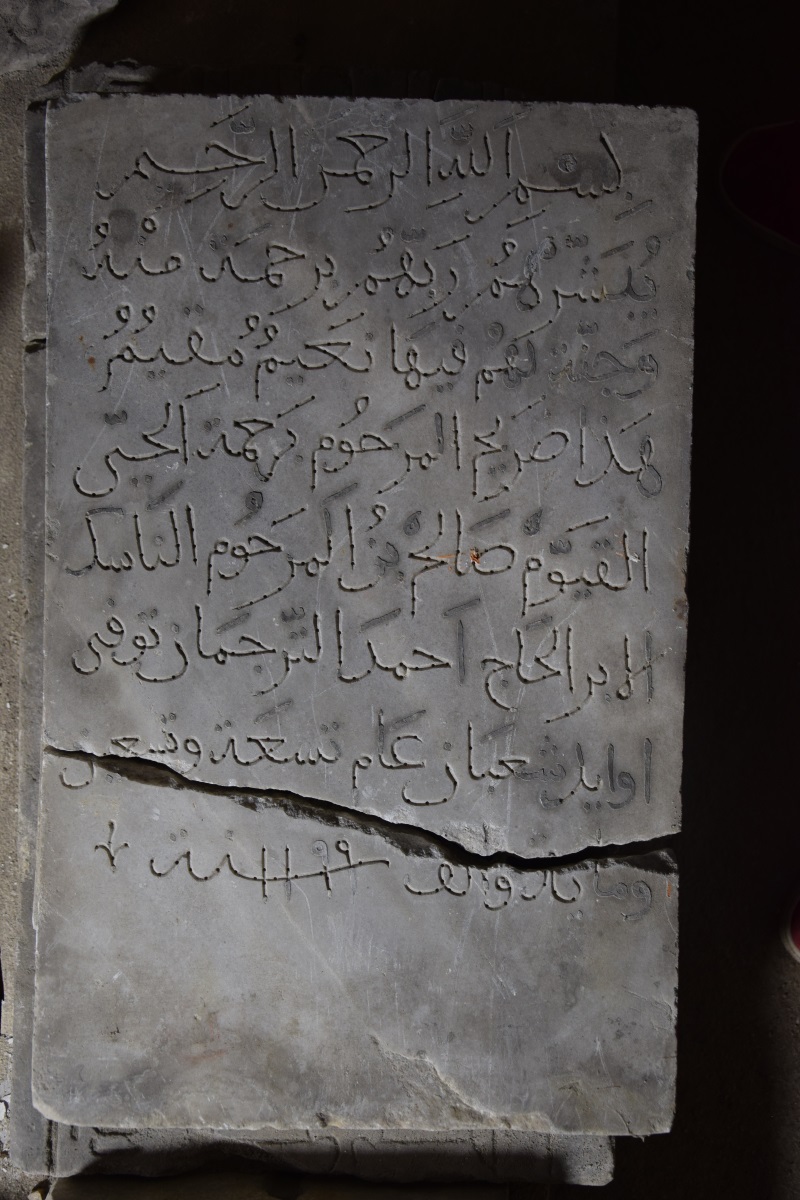 بسم الله الرحمن الرحيم
يُبَشِّرُهُمْ رَبُّهُمْ بِرَحْمَةٍ مِنْهُ
وَجَنَّةٍ لَهُمْ فِيهَا نَعِيمٌ مُقِيمٌ
هَذَا ضَرِيحُ المَرحُوم بِرَحمة الحيّ
القَيّوم صَالح بنُ المَرحُوم النَّاسك
الابر الحَاج احمدَ التّرجمَان توفى
اوايل شعبَان عَام تسعَة وتسعين
وماية والف ١١٩٩ سنة